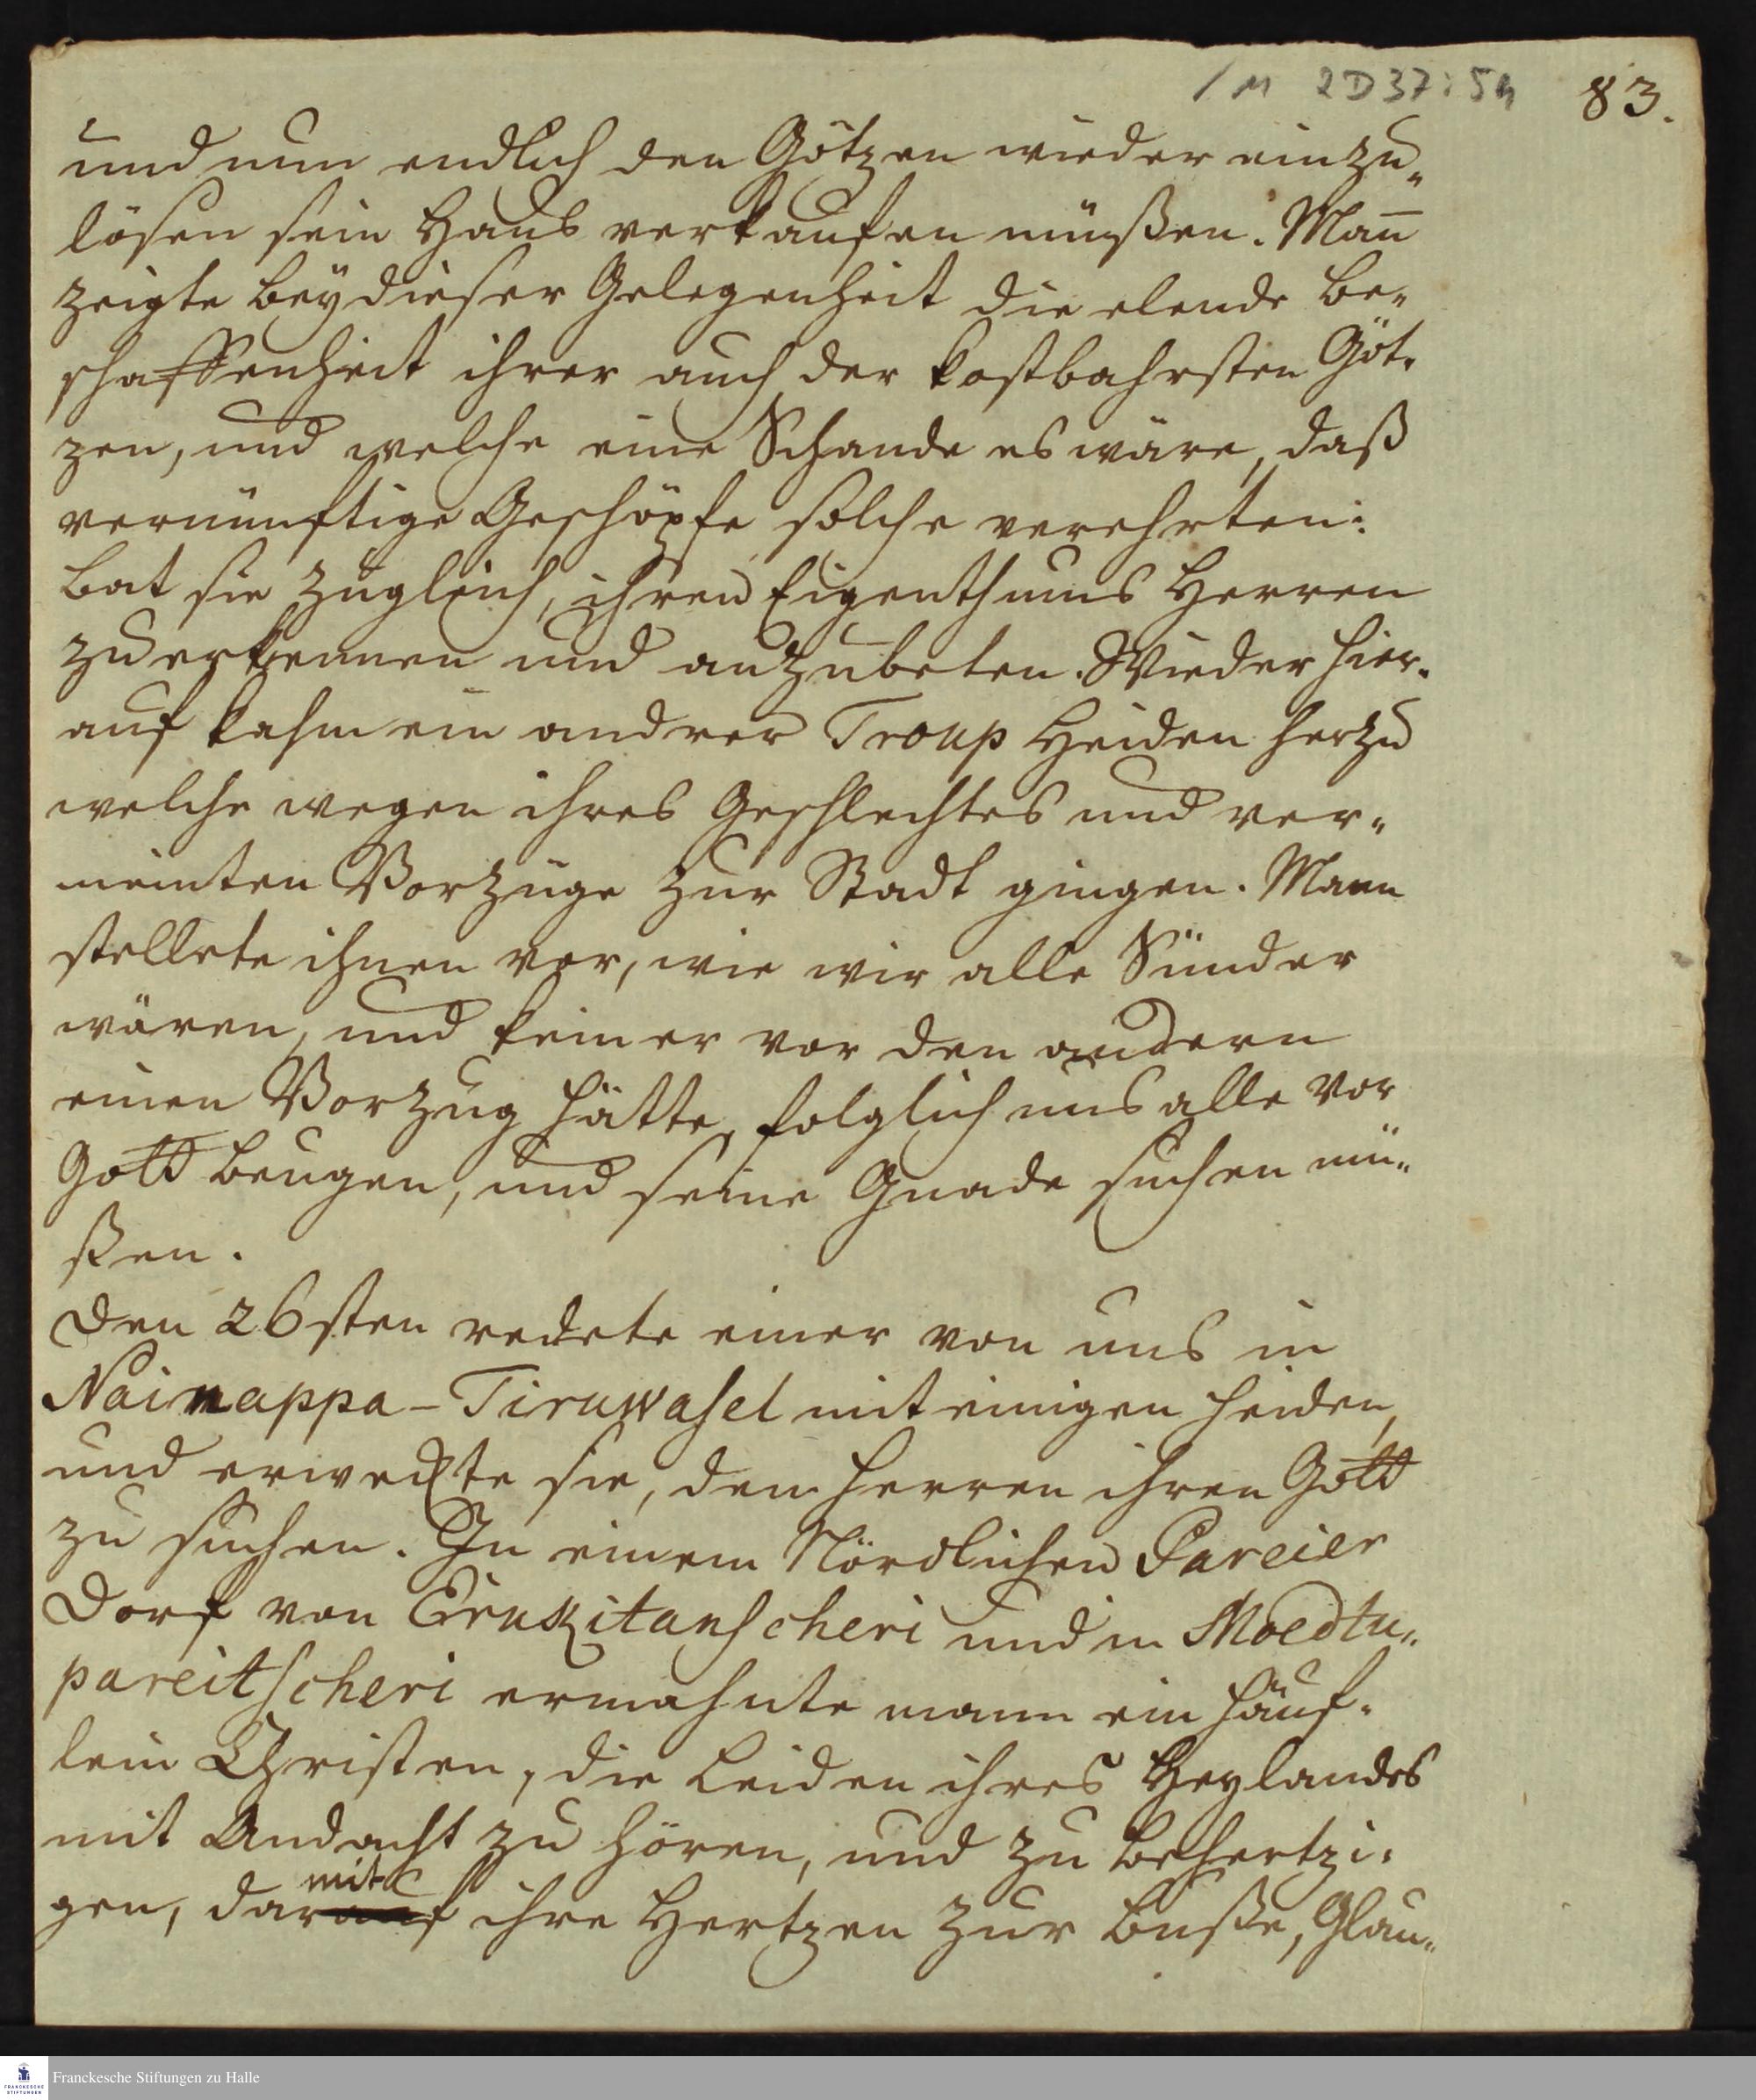 1 M 2D37:54 83.
und nun endlich den Götzen wieder einzu„
lösen sein Haus verkauffen müßen. Man̅
zeigte beÿ dieser Gelegenheit die elende Be„
schaffenheit ihrer auch der kostbahrsten Göt„
zen, und welche eine Schande es wäre, daß
vernünftige Geschöpfe solche verehrten:
bat sie zugleich, ihren Eigenthums Herren
zu erkennen und anzubeten. Wieder hier„
auf kahm ein andrer Troup Heiden herzu
welche wegen ihres Geschlechtes und ver„
meinten Vorzüge zur Stadt gingen. Mann
stellete ihnen vor, wie wir alle Sünder
wären, und keiner vor den andern
einen Vorzug hätte, folglich uns alle vor
Gott beugen, und seine Gnade suchen mü„
ßen.
Den 26sten redete einer von uns in
Nainappa-Tiruwasel mit einigen Heiden,
und erweckte sie, den Herren ihren Gott
zu suchen. In einem Nördlichen Pareier
Dorf von Erukitanscheri und in Moedtu„
pareitscheri ermahnte mann ein Häuf„
lein Christen, die Leiden ihres Heylandes
mit Andacht zu hören, und zu behertzi„
mit
gen, darauf ihre Hertzen zur Buße, Glau„
Franckesche Stiftungen zu Halle
FRANCKESCHE STIFTUNGEN